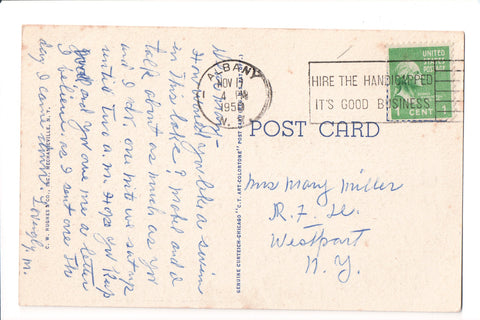 ALBANY
NOV 13
4 PM
1950
N.Y.
HIRE THE HANDICAPPED
IT'S GOOD BUSINESS
UNITED
1 CENT 1
POST CARD
Mrs Mary Miller
R. F. D.
Westport
N. Y.
How would you like a swim
in this lake? Mabel and I
talk about as much as you
and I do, one nite we sat up
until two a.m. Hope you keep
good and you owe me a letter
I believe, as I sent one the
day I came down. Lovingly, M.
GENUINE CURTEICH-CHICAGO "C.T. ART-COLORTONE" POST CARD
C. W. HUGHES & CO., INC., MECHANICVILLE, N. Y.